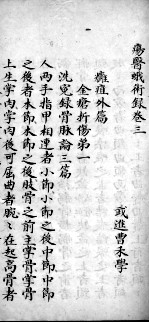 瘍醫蛾術錄卷三
或進曹禾學
癰疽外篇
金瘡折傷第一
洗寃錄骨脉論三篇
人兩手指甲相連者小節小節之後中節中節
之後者本節本節之後肢骨之前生掌骨掌骨
上生掌肉掌肉後可屈曲者腕腕左起高骨者